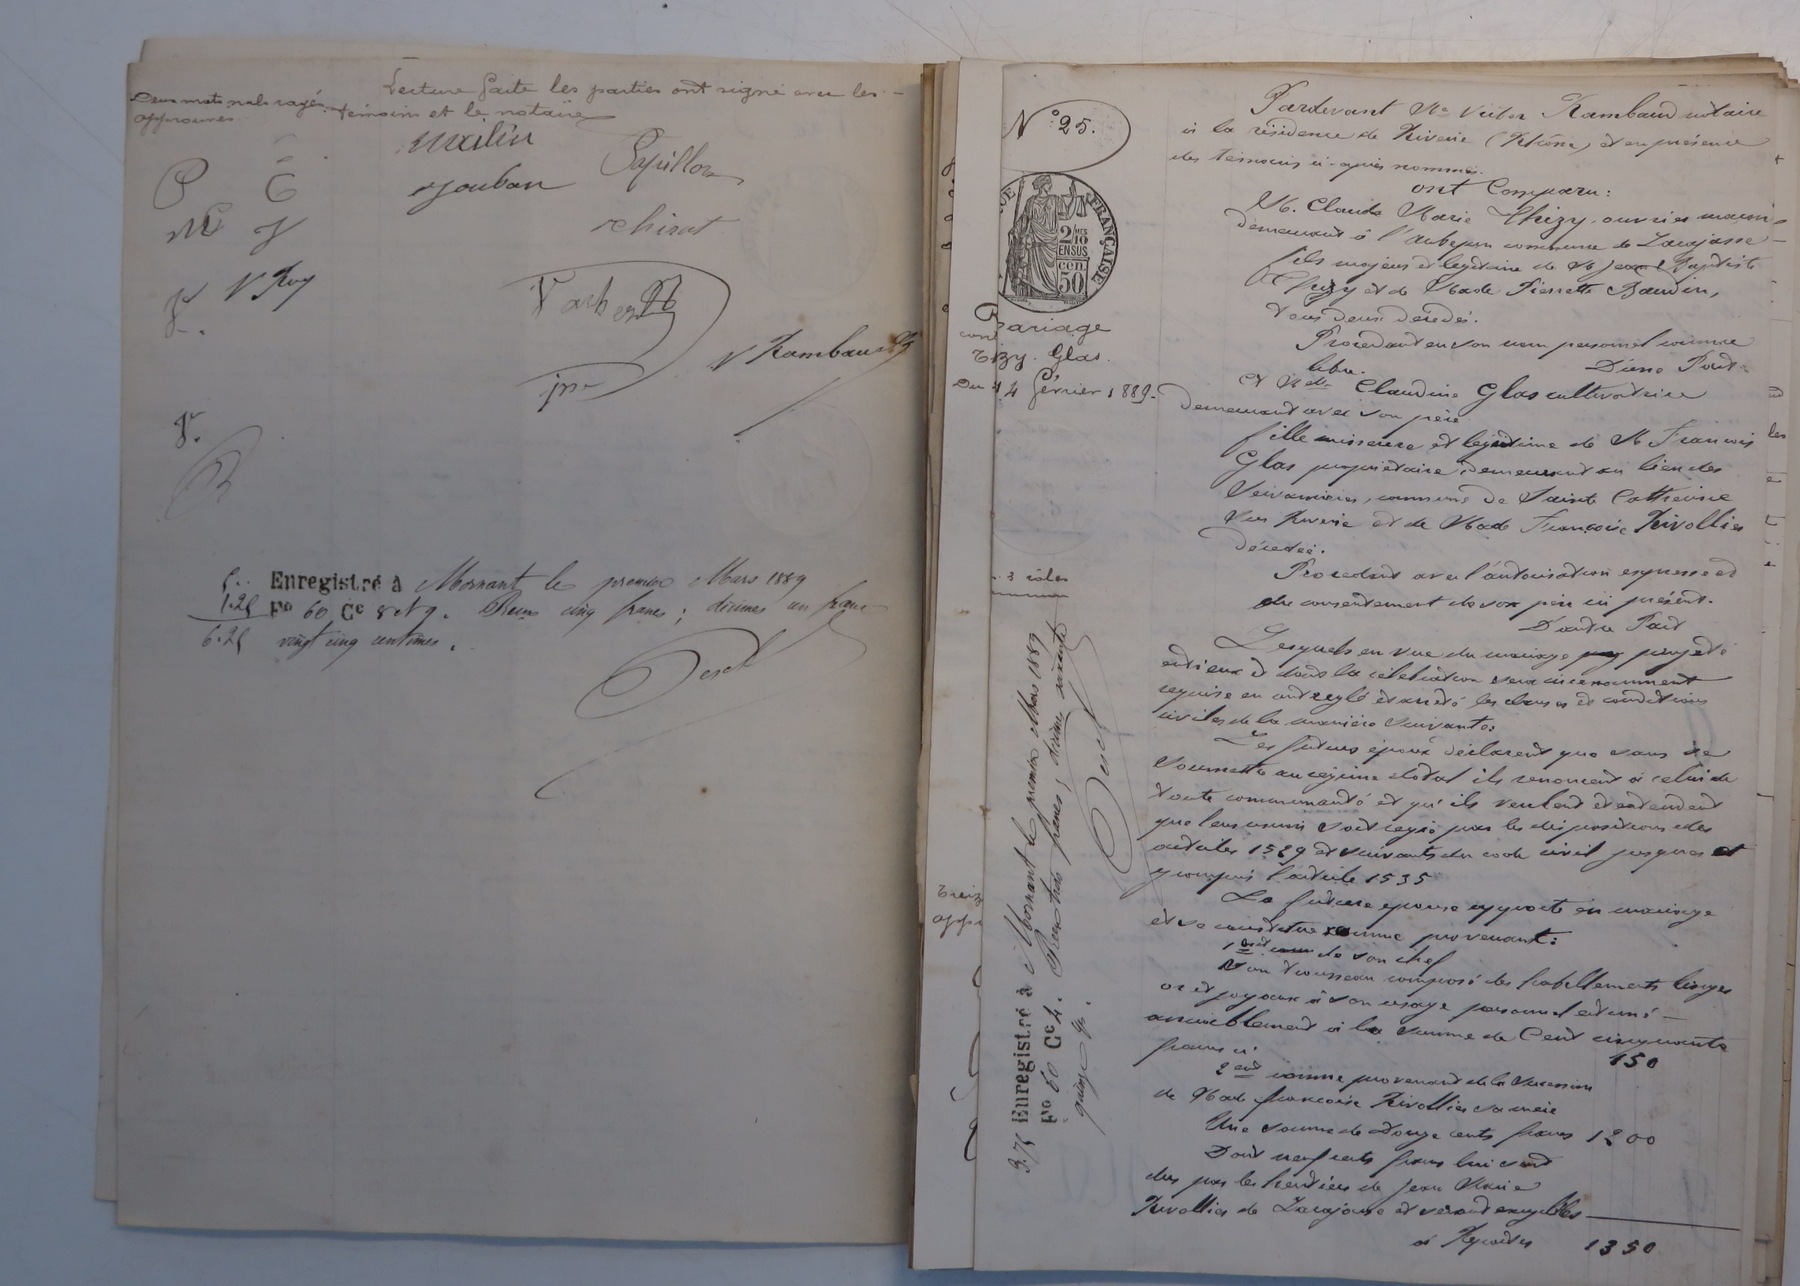 Lecture faite les parties ont signé avec les
Deux mots nuls rayés
témoins et le notaire
approuvés
P C
Papillon
Joubar
M J
Chirat
V Roy
V Rambaud
5..
Enregistré à Mornant le premier Mars 1889
1.25
Fº 60 Cº 8 et 9. Reçu cinq francs ; décimes un franc
6.25
vingt cinq centimes.
Nº 25.
RÉPUBLIQUE FRANÇAISE
2/10 EN SUS
50 cen.
Mariage
Thizy. Glas.
Du 14 février 1889.
3 rôles
Enregistré à Mornant le premier Mars 1889
Fº 60 Cº 4. Reçu trois francs, décime soixante
quinze c.
3.75
Pardevant Me Victor Rambaud notaire
à la résidence de Riverie (Rhône) et en présence
des témoins ci-après nommés.
ont Comparu:
M. Claude Marie Thizy, ouvrier maçon
demeurant à l'aubepin commune de Larajasse
fils majeur et légitime de M Jean Baptiste
Thizy et de Made Pierrette Baudin,
tous deux décédés.
Procédant en son nom personnel comme
libre.
D'une Part.
et Melle Claudine Glas cultivatrice
demeurant avec son père
fille mineure et légitime de M François
Glas propriétaire demeurant au lieu des
commune de Sainte Catherine
sur Riverie et de Made Françoise Rivollier
décédée.
Procédant avec l'autorisation expresse et
du consentement de son père ici présent.
D'autre Part
Lesquels en vue du mariage projeté
entr'eux et dont la célébration sera incessamment
requise en ont réglé et arrêté les clauses et conditions
civiles de la manière suivante:
Les futurs époux déclarent que sans se
soumettre au régime dotal ils renoncent à celui de
toute communauté et qu'ils veulent et entendent
que leur union soit régie par les dispositions des
articles 1529 et suivants du code civil jusques et
y compris l'article 1535
La future épouse apporte en mariage
et se constitue comme provenant:
1ent de son chef
Son trousseau composé des habillements linges
or et joyaux à son usage personnel estimé
ensemblement à la somme de Cent cinquante
francs ci 150
2ent comme provenant de la succession
de Made françoise Rivollier sa mère
Une somme de Douze cents francs 1200
Dont neuf cents francs lui sont
dus par les héritiers de Jean Marie
Rivollier de Larajasse et seront exigibles
à Reporter 1350